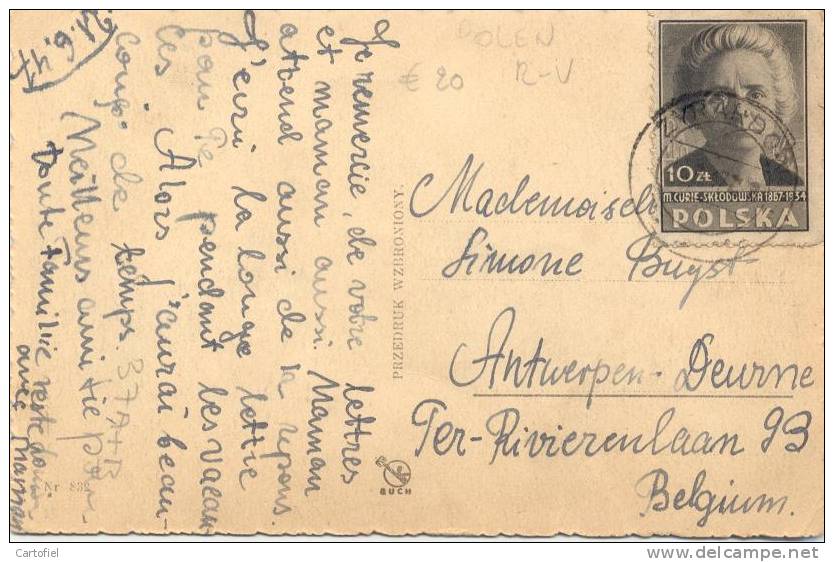 Je remercie, de votre lettres
et maman aussi. Maman
attend aussi de la repons.
J'ecri la longe lettre
pour Pe pendant les vacan-
ces. Alors j'aurai beau-
coup de temps.
Meilleurs amitie pour
toute Familie
avec Maman
21.6.47
POLEN
€ 20 R-V
10 ZŁ
M. CURIE-SKŁODOWSKA 1867-1934
POLSKA
Mademoisel
Simone Buyst
Antwerpen-Deurne
Ter-Rivierenlaan 93
Belgium.
PRZEDRUK WZBRONIONY.
RUCH
Nr 832
37A+B
Cartofiel
www.delcampe.net